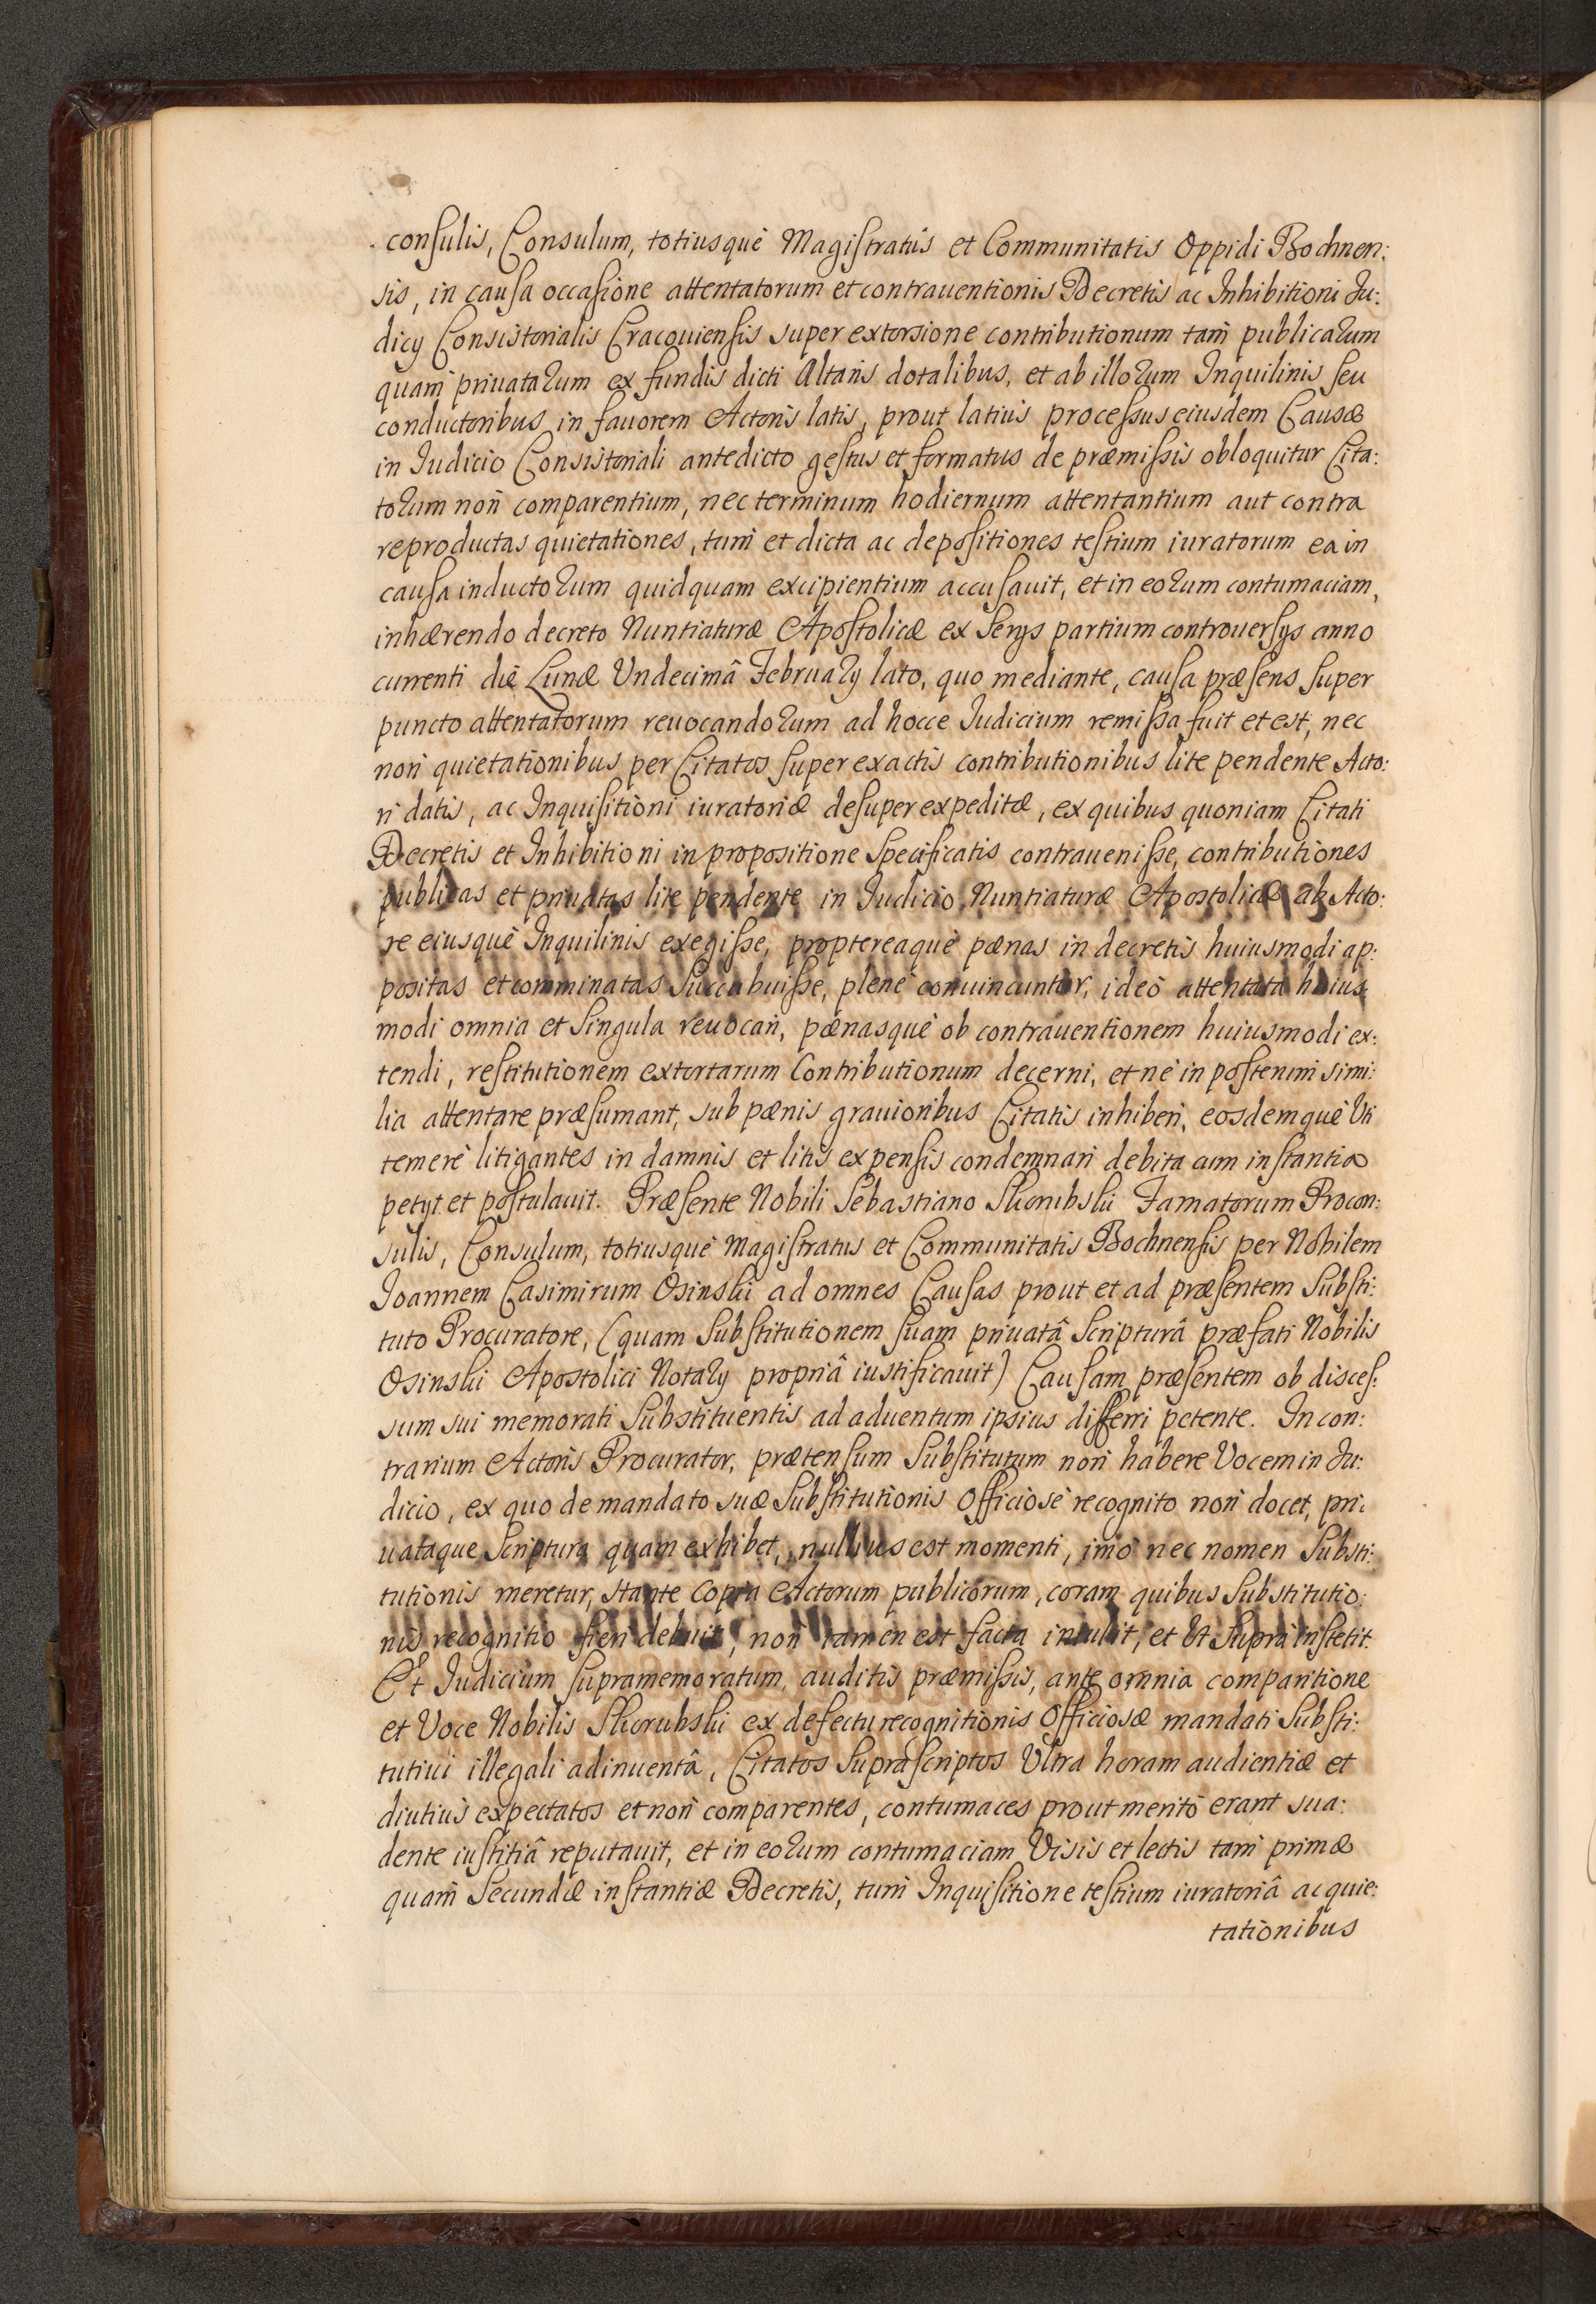 consulis, Consulum, totiusquè Magistratûs et Communitatis Oppidi Bochnen:
sis, in causa occasione attentatorum et contrauentionis Decretis ac Inhibitioni Ju:
dicÿ Consistorialis Cracouiensis super extorsione contributionum tam publicarum
quam priuatarum ex fundis dicti Altaris dotalibus, et ab illorum Inquilinis seu
conductoribus in fauorem Actoris latis, prout latius processus eiusdem Causæ
in Judicio Consistoriali antedicto gestus et formatus de præmissis obloquitur Cita:
torum non comparentium, nec terminum hodiernum attentantium aut contra
reproductas quietationes, tum et dicta ac depositiones testium iuratorum ea in
causa inductorum quidquam excipientium accusauit, et in eorum contumaciam,
inhærendo decreto Nuntiaturæ Apostolicæ ex serÿs partium controuersÿs anno
currenti die Lunæ Undecimâ Februarÿ lato, quo mediante, causa præsens super
puncto attentatorum reuocandorum ad hocce Judicium remissa fuit et est, nec
non quietationibus per Citatos super exactis contributionibus lite pendente Acto:
ri datis, ac Inquisitioni iuratoriæ desuper expeditæ, ex quibus quoniam Citati
Decretis et Inhibitioni in propositione Specificatis contrauenisse, contributiones
publicas et priuatas lite pendente in Judicio Nuntiaturæ Apostolicæ ab Acto:
re eiusquè Inquilinis exegisse, proptereaquè pænas in decretis huiusmodi ap:
positas et comminatas succubuisse, plenè conuincuntur, ideò attentata huius
modi omnia et singula reuocari, pænasquè ob contrauentionem huiusmodi ex:
tendi, restitutionem extortarum Contributionum decerni, et nè in posterum simi:
lia attentare præsumant, sub pænis grauioribus Citatis inhiberi, eosdemquè Uti
temerè litigantes in damnis et litis expensis condemnari debita cum instantia
petÿt et postulauit. Præsente Nobili Sebastiano Skorubski Famatorum Procon:
sulis, Consulum, totiusquè Magistratus et Communitatis Bochnensis per Nobilem
Joannem Casimirum Osinski ad omnes Causas prout et ad præsentem Substi:
tuto Procuratore, (quam Substitutionem suam priuatâ Scripturâ præfati Nobilis
Osinski Apostolici Notarÿ propriâ iustificauit) Causam præsentem ob disces:
sum sui memorati Substituentis ad aduentum ipsius differri petente. In con:
trarium Actoris Procurator, prætensum Substitutum non habere Vocem in Ju:
dicio, ex quo de mandato suæ Substitutionis Officiosè recognito non docet, pri:
uataque Scriptura quam exhibet, nullius est momenti, imò nec nomen Substi:
tutionis meretur, stante copia Actorum publicorum, coram quibus Substitutio:
nis recognitio fieri debuit, non tamen est facta intulit, et Ut Suprà institit.
Et Judicium supramemoratum, auditis præmissis, ante omnia comparitione
et Voce Nobilis Skorubski ex defectu recognitionis Officiosæ mandati Substi:
tutiui illegali adinuentâ, Citatos Suprascriptos Ultra horam audientiæ et
diutius expectatos et non comparentes, contumaces prout meritò erant sua:
dente iustitiâ reputauit, et in eorum contumaciam Visis et lectis tam primæ
quam Secundæ instantiæ Decretis, tum Inquisitione testium iuratoriâ ac quie:
tationibus